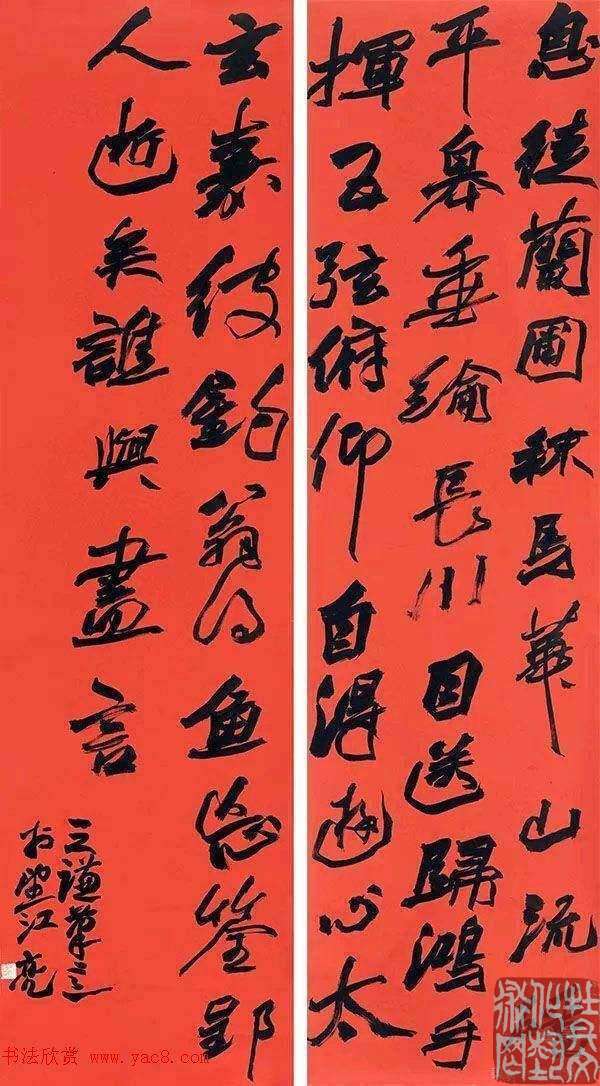 息徒蘭圃秣馬華山流
平皋垂綸長川目送歸鴻手
揮五弦俯仰自得遊心太
玄嘉彼釣翁得魚忘筌郢
人逝矣誰與盡言
书法欣赏 www.yac8.com